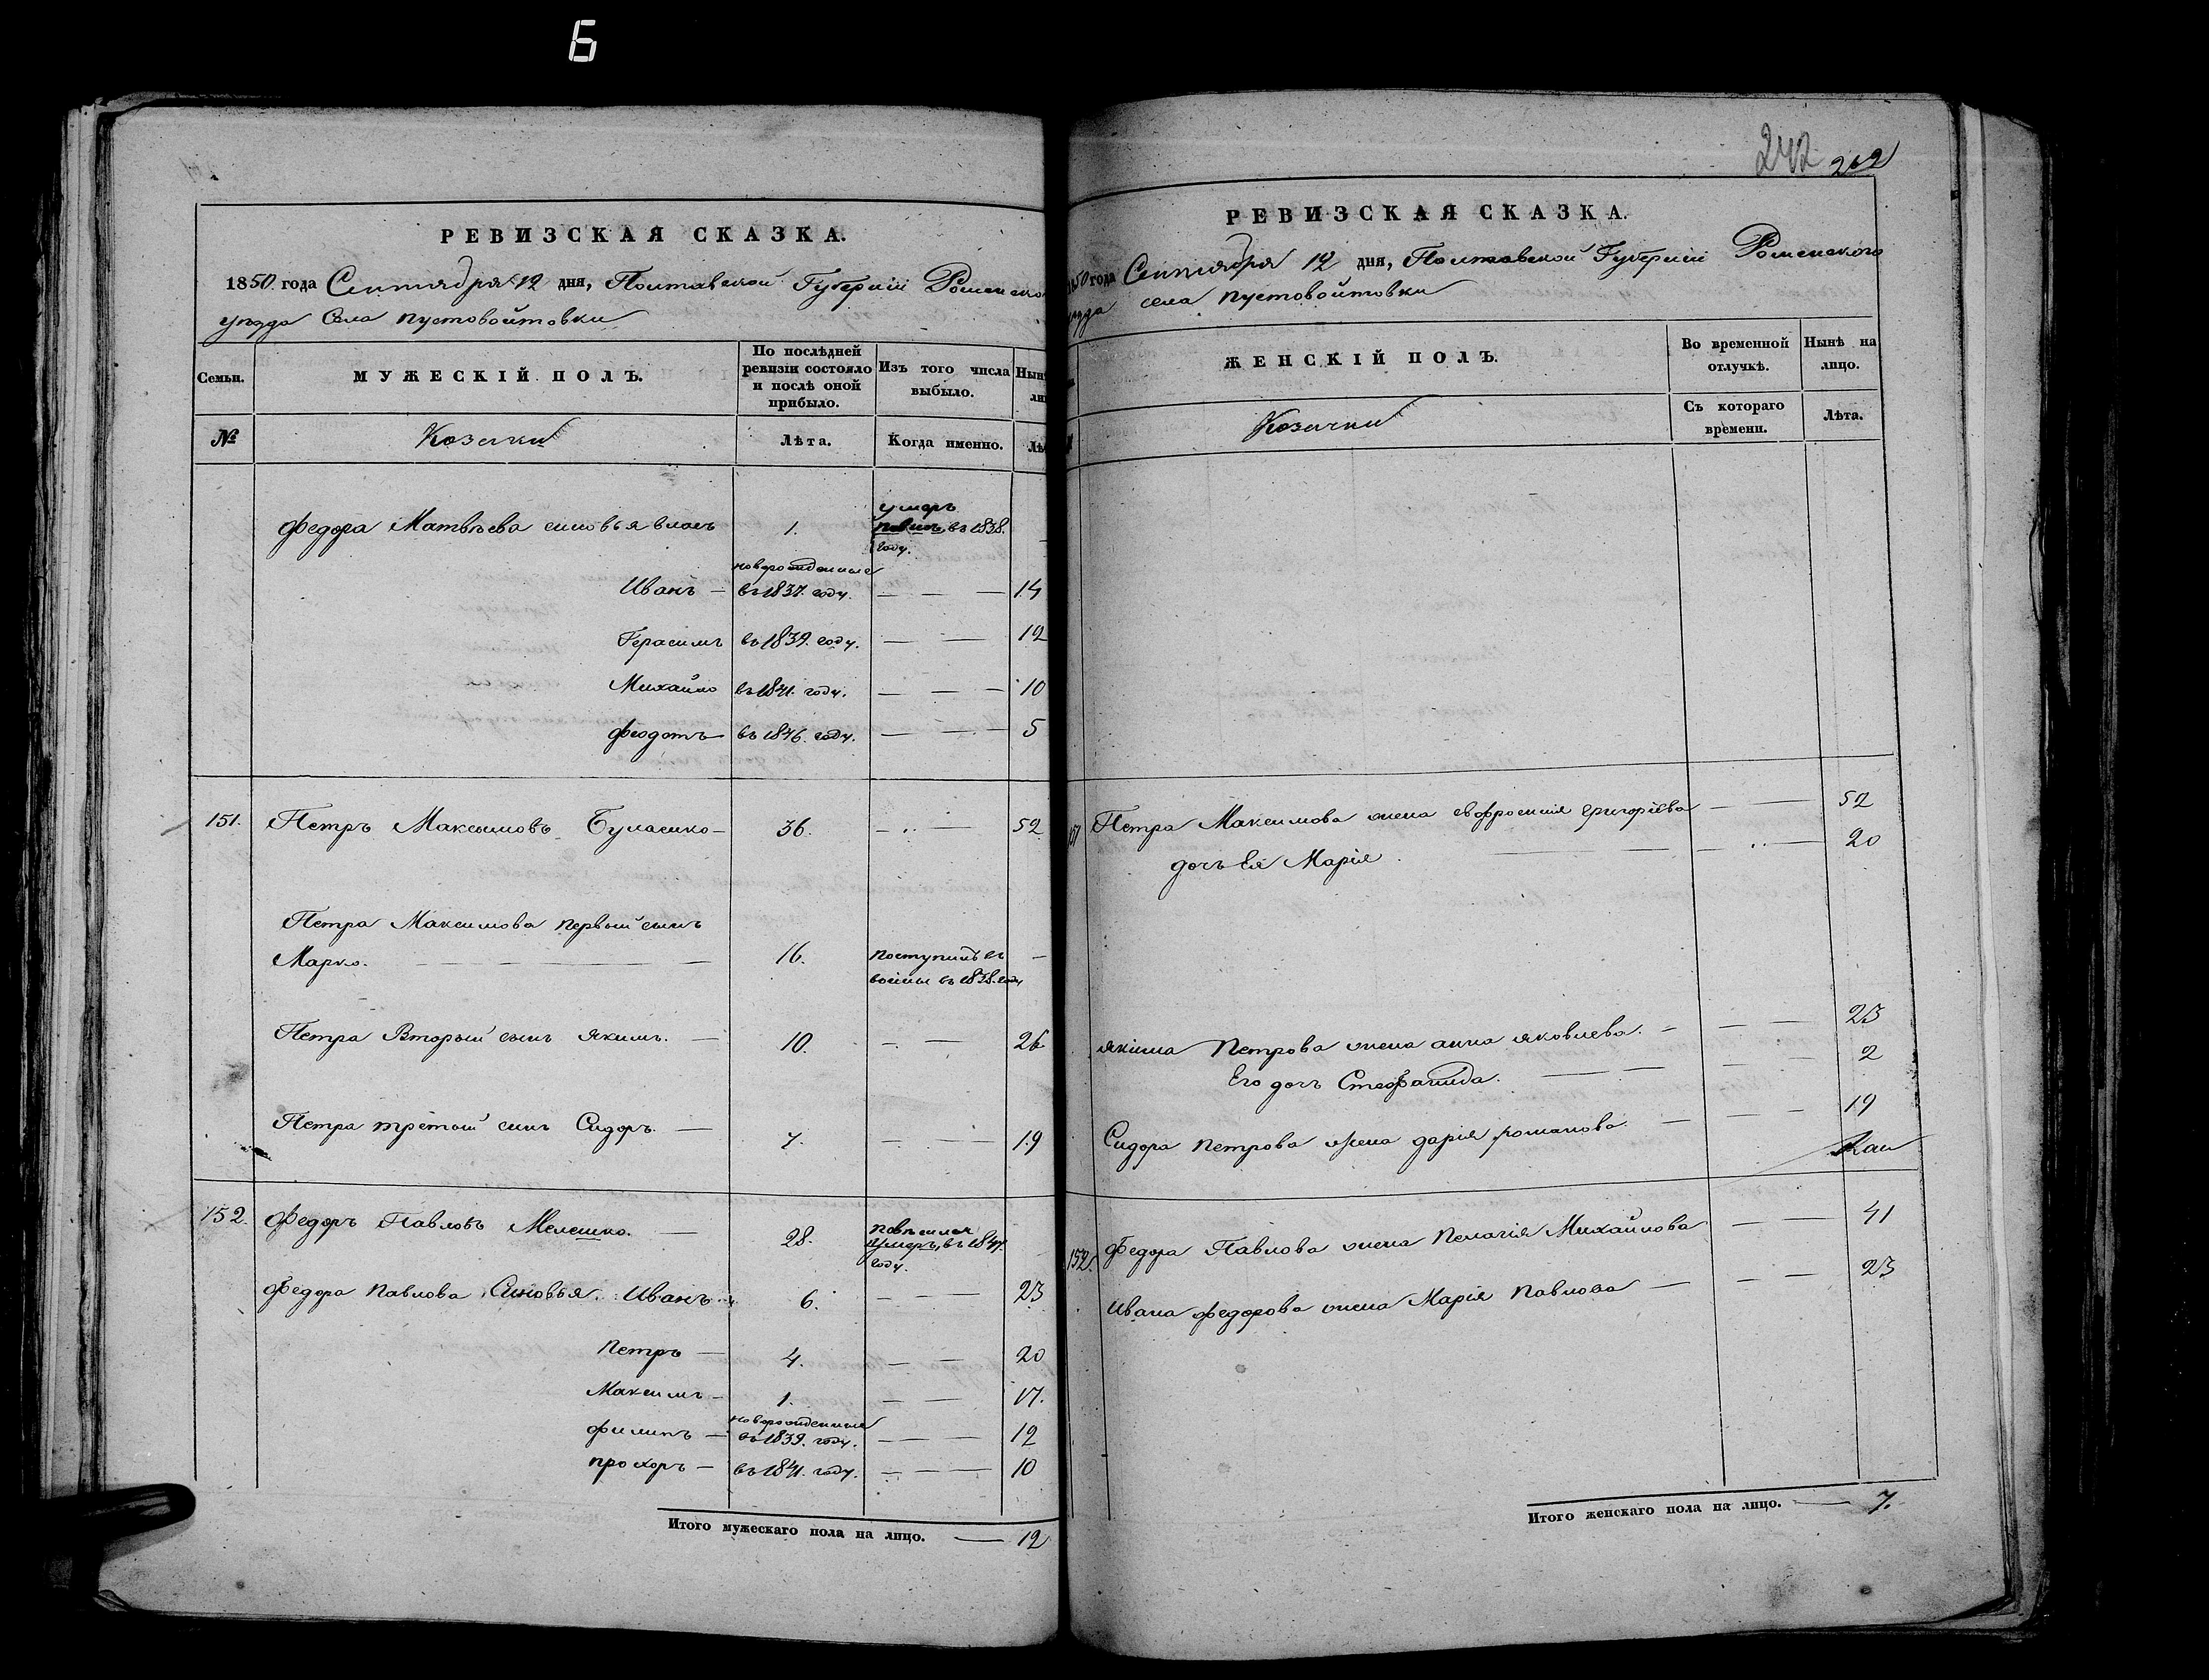 Б
РЕВИЗСКАЯ СКАЗКА.
1850 года Сентября 12 дня, Полтавской Губерніи Роменско
уѣзда Села Пустовойтовки
Семьи.
МУЖЕСКІЙ ПОЛЪ.
По послѣдней ревизіи состояло и послѣ оной прибыло.
Изъ того числа выбыло.
Нын
ли
№
Козаки
Лѣта.
Когда именно.
Лѣ
Федора Матвѣева сыновья Власъ 1. умеръ въ 1838. году.
новорожденные
Иванъ — въ 1837. году. — — — 14
Герасимъ въ 1839. году. — — 12
Михайло въ 1841. году. — — — 10
Феодотъ въ 1846. году. — — — 5
151. Петръ Максимовъ — 36. — — 52
Петра Максимова первый сынъ
Марко. — — — 16. поступилъ въ —
воины въ 1838. году
Петра Вторый сынъ Якимъ. — 10. — — 26.
Петра третый сынъ Сидоръ. — 7. — — 19
152. Федоръ Павловъ Мелешко. — 28. умеръ, въ 1847. году.
Федора Павлова Сыновья. Иванъ 6. — — 23
Петръ — 4. — — 20
Максимъ — 1. — — 17.
новорожденные
Филипъ — въ 1839. году. — — — 12
Прохоръ — въ 1841. году. — — — 10
Итого мужескаго пола на лицо. — 12
242 242
РЕВИЗСКАЯ СКАЗКА.
1850 года Сентября 12 дня, Полтавской Губерніи Роменского
уѣзда села Пустовойтовки
ЖЕНСКІЙ ПОЛЪ.
Во временной отлучкѣ.
Нынѣ на лицо.
Козачки
Съ котораго времени.
Лѣта.
151 Петра Максимова жена Евфросинія Григоріева — — 52
дочь Ея Марія. — — — — 20
Якима Петрова жена Анна Яковлева. — — — 23
Его дочь Стефанида. — — — — 2
Сидора Петрова жена Дарія Романова. — — — 19
152. Федора Павлова жена Пелагія Михайлова — — 41
Ивана Федорова жена Марія Павлова — — — 23
Итого женскаго пола на лицо. — 7.